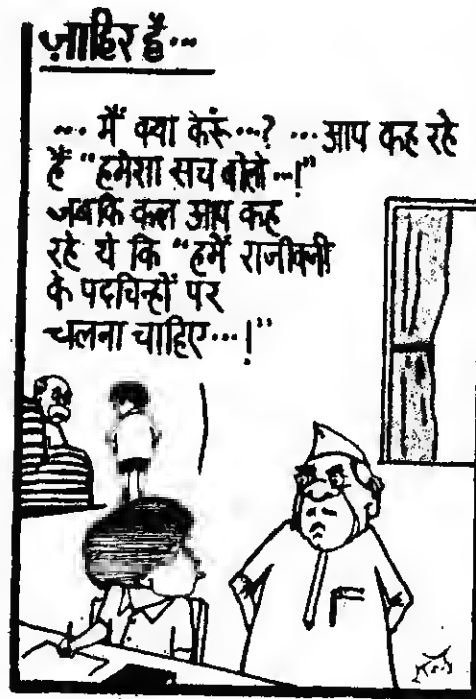 ज़ाहिर है...
... मैं क्या करूं...? ... आप कह रहे
हैं "हमेशा सच बोलो...!"
जबकि कल आप कह
रहे थे कि "हमें राजीवजी
के पदचिन्हों पर
चलना चाहिए...!"